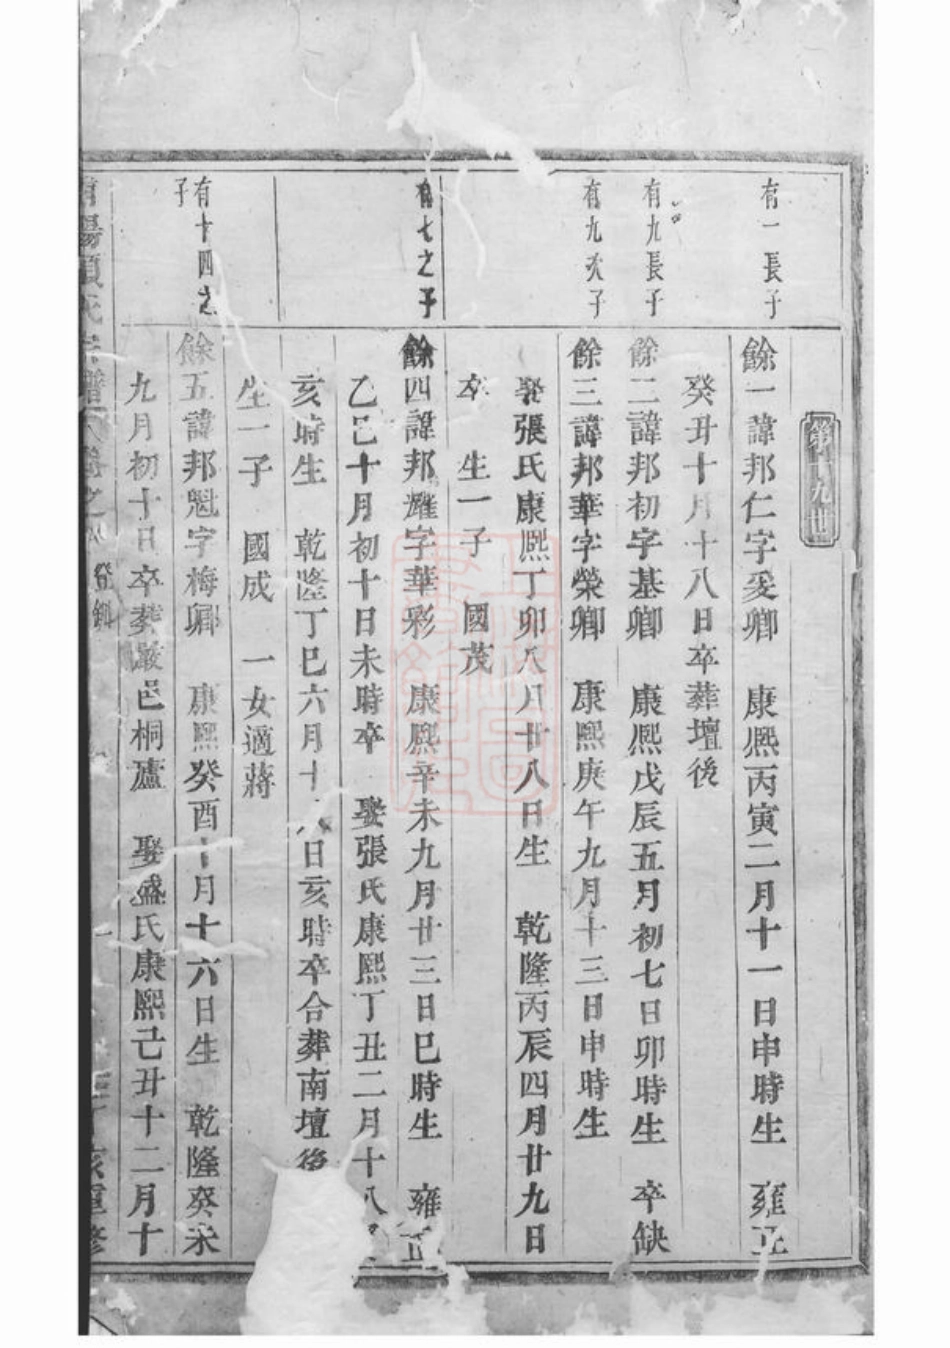 第十九世
有一長子
餘一諱邦仁字爰卿　康熙丙寅二月十一日申時生　雍正
癸丑十月十八日卒葬壇後
有九長子
餘二諱邦初字基卿　康熙戊辰五月初七日卯時生　卒缺
有九次子
餘三諱邦華字榮卿　康熙庚午九月十三日申時生
娶張氏康熙丁卯八月廿八日生　乾隆丙辰四月廿九日
卒　生一子　國茂
有七之子
餘四諱邦燿字華彩　康熙辛未九月廿三日巳時生　雍正
乙巳十月初十日未時卒　娶張氏康熙丁丑二月十八
亥時生　乾隆丁巳六月十八日亥時卒合葬南壇後
生一子　國成　一女適蔣
有十四之
子
餘五諱邦魁字梅卿　康熙癸酉十月十六日生　乾隆癸未
九月初十日卒葬嚴邑桐廬　娶盛氏康熙己丑十二月十